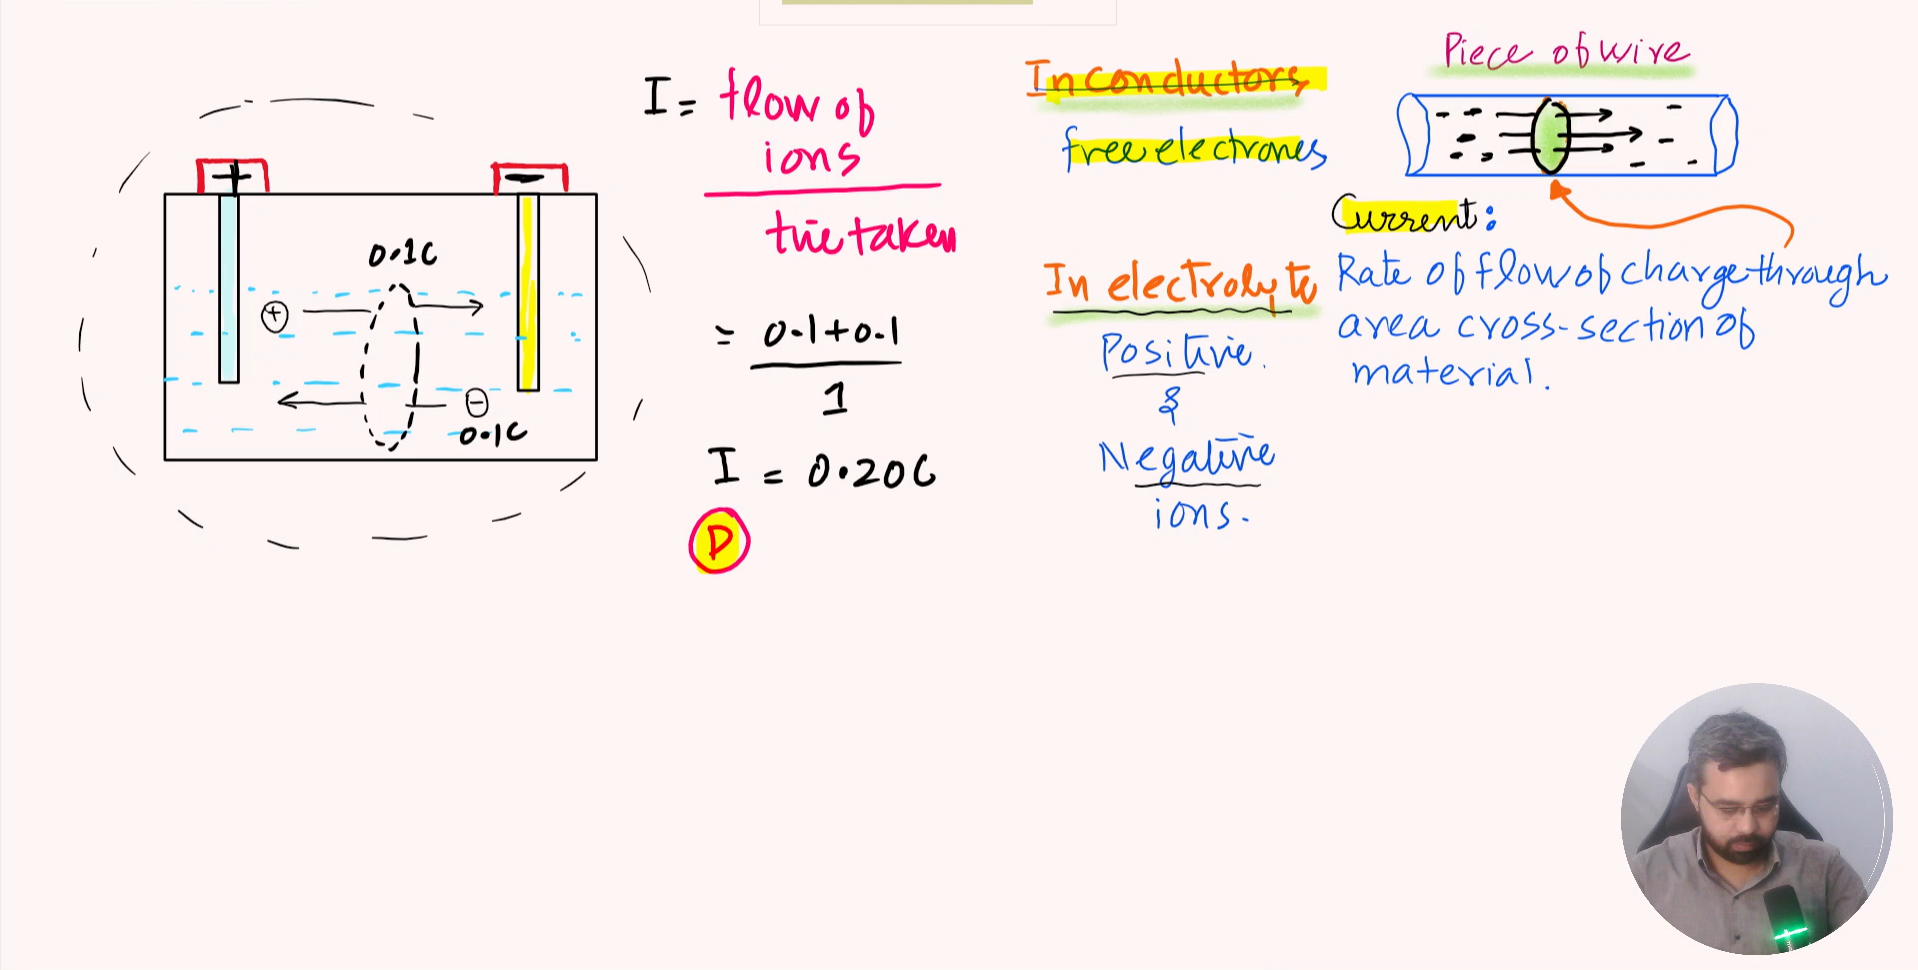 +
−
0.1C
+
−
0.1C
I = flow of
ions
time taken
= 0.1+0.1
1
I = 0.20C
D
In conductors,
free electrones
In electrolyte
Positive.
&
Negative
ions.
Piece of wire
Current:
Rate of flow of charge through
area cross-section of
material.